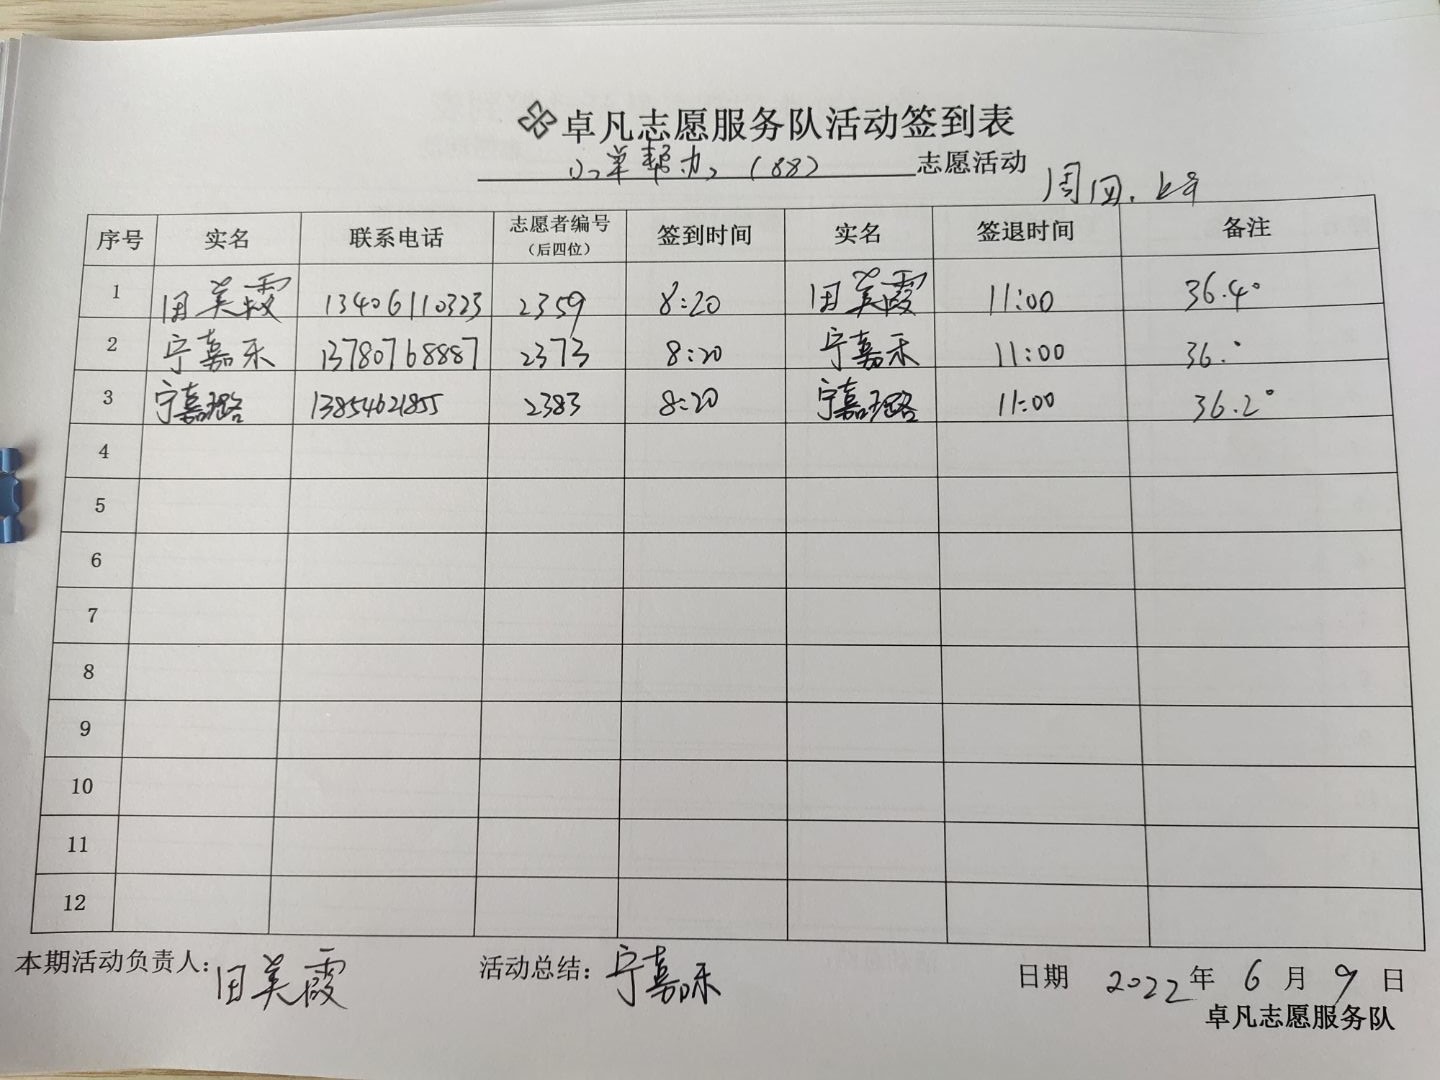 卓凡志愿服务队活动签到表
小单帮办（88） 志愿活动 周四.上午
序号 实名 联系电话 志愿者编号（后四位） 签到时间 实名 签退时间 备注
1 田美霞 13406110323 2359 8:20 田美霞 11:00 36.4°
2 宁嘉禾 13780768887 2373 8:20 宁嘉禾 11:00 36.°
3 宁嘉璐 13854621855 2383 8:20 宁嘉璐 11:00 36.2°
4
5
6
7
8
9
10
11
12
本期活动负责人：田美霞 活动总结：宁嘉禾 日期 2022年6月9日
卓凡志愿服务队